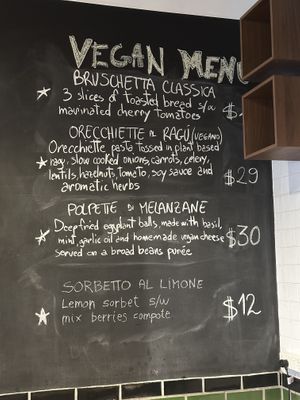 VEGAN MENU
BRUSCHETTA CLASSICA
3 slices of toasted bread s/w
marinated cherry tomatoes $
ORECCHIETTE AL RAGÚ (VEGANO)
Orecchiette pasta tossed in plant based
ragu, slow cooked onions, carrots, celery,
lentils, hazelnuts, tomato, soy sauce and $29
aromatic herbs
POLPETTE DI MELANZANE
Deep fried eggplant balls, made with basil,
mint, garlic oil and homemade vegan cheese $30
served on a broad beans purée
SORBETTO AL LIMONE
Lemon sorbet s/w $12
mix berries compote